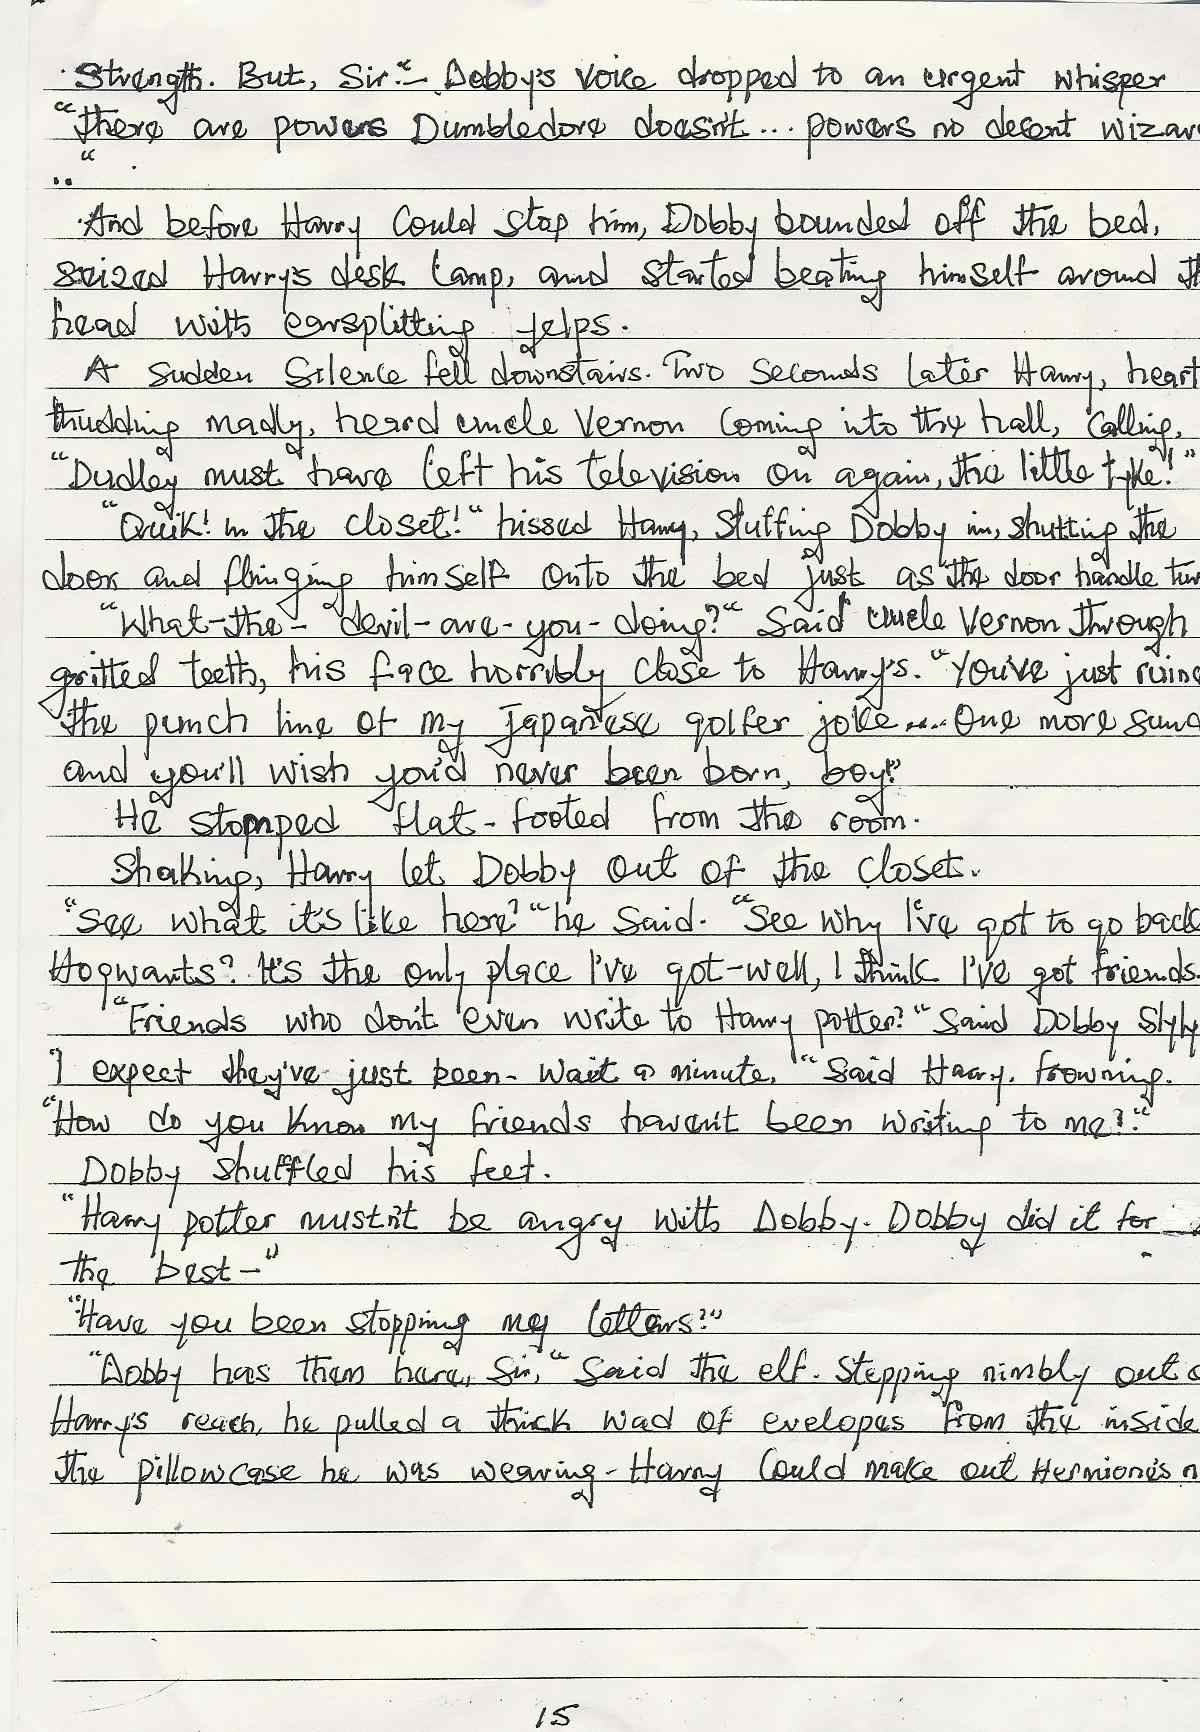 Strength. But, Sir"- Dobby's voice dropped to an urgent whisper
"there are powers Dumbledore doesn't... powers no decent wizar
.. "
And before Harry Could stop him, Dobby bounded off the bed,
seized Harry's desk lamp, and started beating himself around th
head with earsplitting yelps.
A sudden Silence fell downstairs. Two seconds later Harry, heart
thudding madly, heard uncle Vernon Coming into the hall, Calling,
"Dudley must have left his television on again, the little tyke!"
"Quik! in the closet!" hissed Harry, stuffing Dobby in, shutting the
door and flinging himself onto the bed just as the door handle tur
"What-the- devil-are-you-doing?" Said uncle Vernon through
gritted teeth, his face horribly close to Harry's. "You've just ruine
the punch line of my Japanese golfer joke.... One more sund
and you'll wish you'd never been born, boy!"
He stomped flat-footed from the room.
Shaking, Harry let Dobby out of the closet.
"See what it's like here?" he Said. "See why I've got to go back
Hogwarts? It's the only place I've got-well, I think I've got friends.
"Friends who don't even write to Harry potter?" Said Dobby Slyly
"I expect they've just been- wait a minute," Said Harry. frowning.
"How do you know my friends haven't been writing to me?"
Dobby shuffled his feet.
"Harry potter mustn't be angry with Dobby. Dobby did it for
the best-"
"Have you been stopping my letters?"
"Dobby has them here, Sir," Said the elf. Stepping nimbly out o
Harry's reach, he pulled a thick wad of evelopes from the inside
the pillowcase he was wearing-Harry Could make out Hermione's n
15